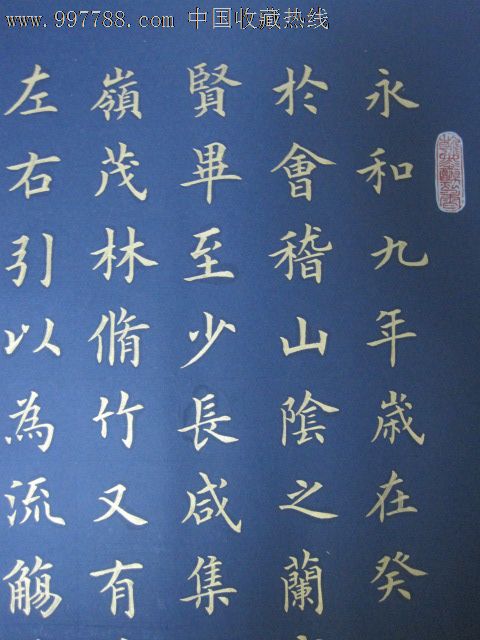 www.997788.com 中国收藏热线
永和九年歳在癸
於會稽山陰之蘭
賢畢至少長咸集
嶺茂林脩竹又有
左右引以為流觴